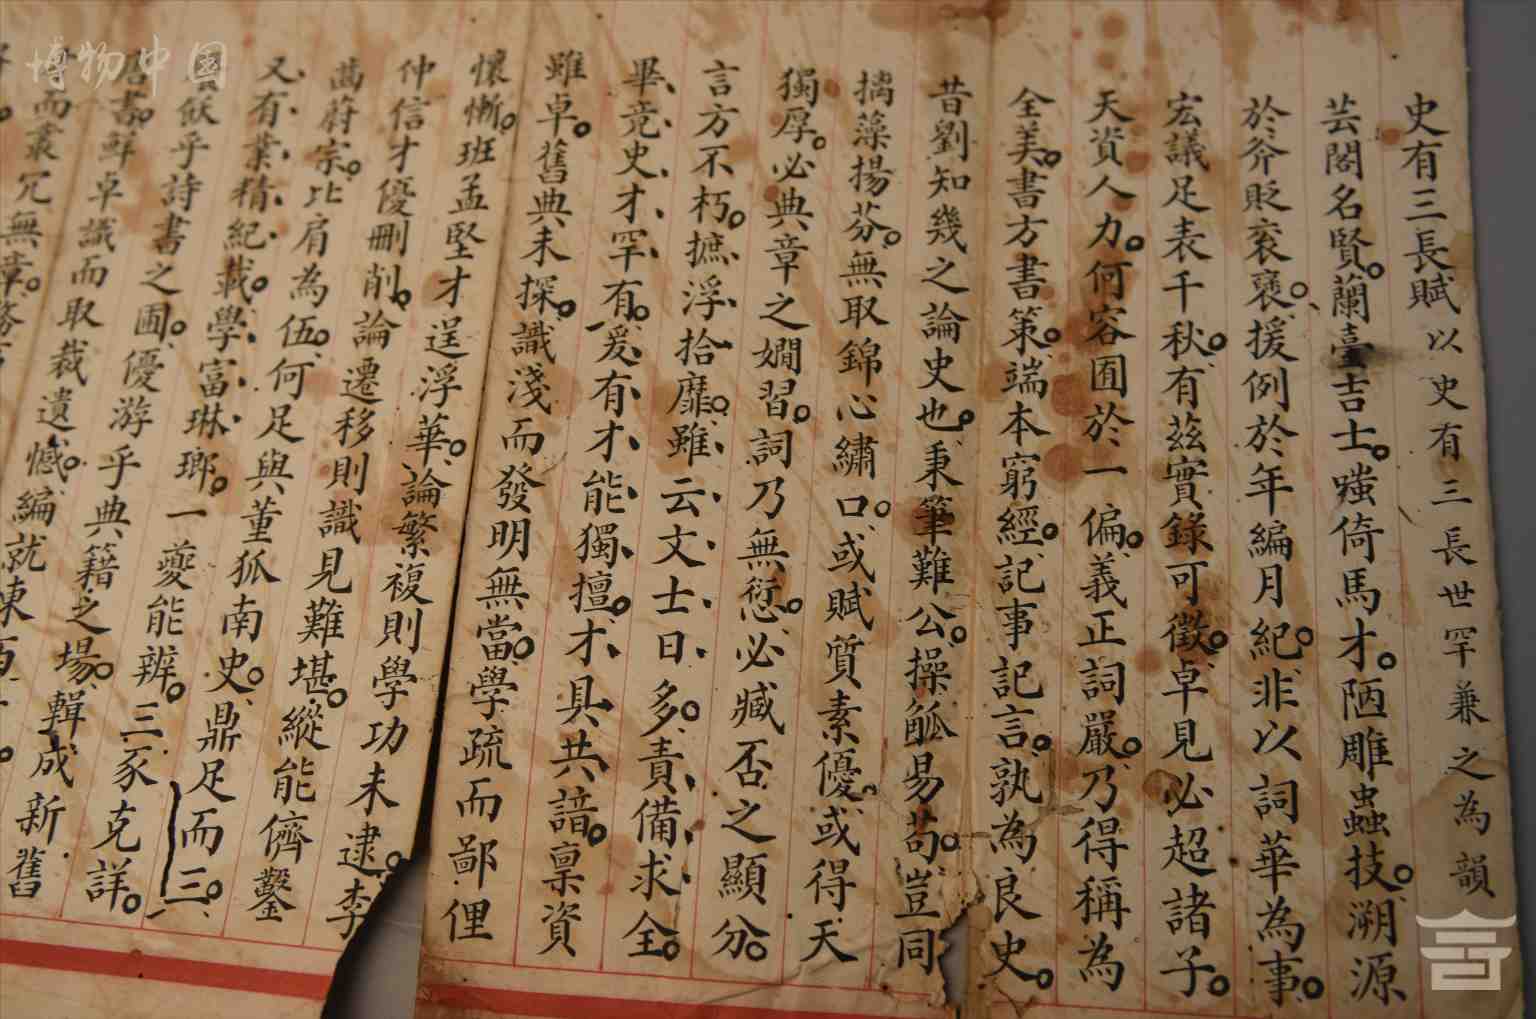 史有三長賦以史有三長世罕兼之為韻
芸閣名賢。蘭臺吉士。嗤倚馬才。陋雕蟲技。溯源
於斧貶衮褒。援例於年編月紀。非以詞華為事。
宏議足表千秋。有茲實錄可徵。卓見必超諸子。
天資人力。何容囿於一偏。義正詞嚴。乃得稱為
全美。書方書策。端本窮經。記事記言。孰為良史。
昔劉知幾之論史也。秉筆難公。操觚易苟。豈同
摛藻揚芬。無取錦心繡口。或賦質素優。或得天
獨厚。必典章之嫺習。詞乃無愆。必臧否之顯分。
言方不朽。摭浮拾靡。雖云文士日多。責備求全。
畢竟史才罕有。爰有才能獨擅。才具共諳。稟資
雖卓。舊典未探。識淺而發明無當。學疏而鄙俚
懷慚。班孟堅才逞浮華。論繁複則學功未逮。李
仲信才優刪削。論遷移則識見難堪。縱能儕鑿
茜蔚宗。比肩為伍。何足與董狐南史。鼎足而三。
又有業精紀載。學富琳瑯。一夔能辨。三豕克詳。
飫乎詩書之圃。優游乎典籍之場。輯成新舊
唐書。鮮卓識而取裁遺憾。編就東西
而叢冗無章。
博物中国